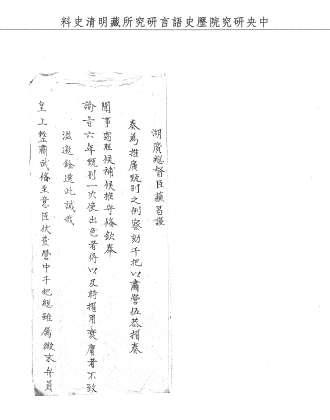 中央研究院歷史語言研究所藏明清史料
湖廣總督臣蘇昌謹
奏為推廣甄別之例察劾千把以肅營伍恭摺奏
聞事竊照候補候推守備欽奉
諭旨六年甄別一次使出色者得以及時擢用衰庸者不致
濫邀銓選此誠我
皇上整肅武備至意臣伏查營中千把總雖屬微末弁員